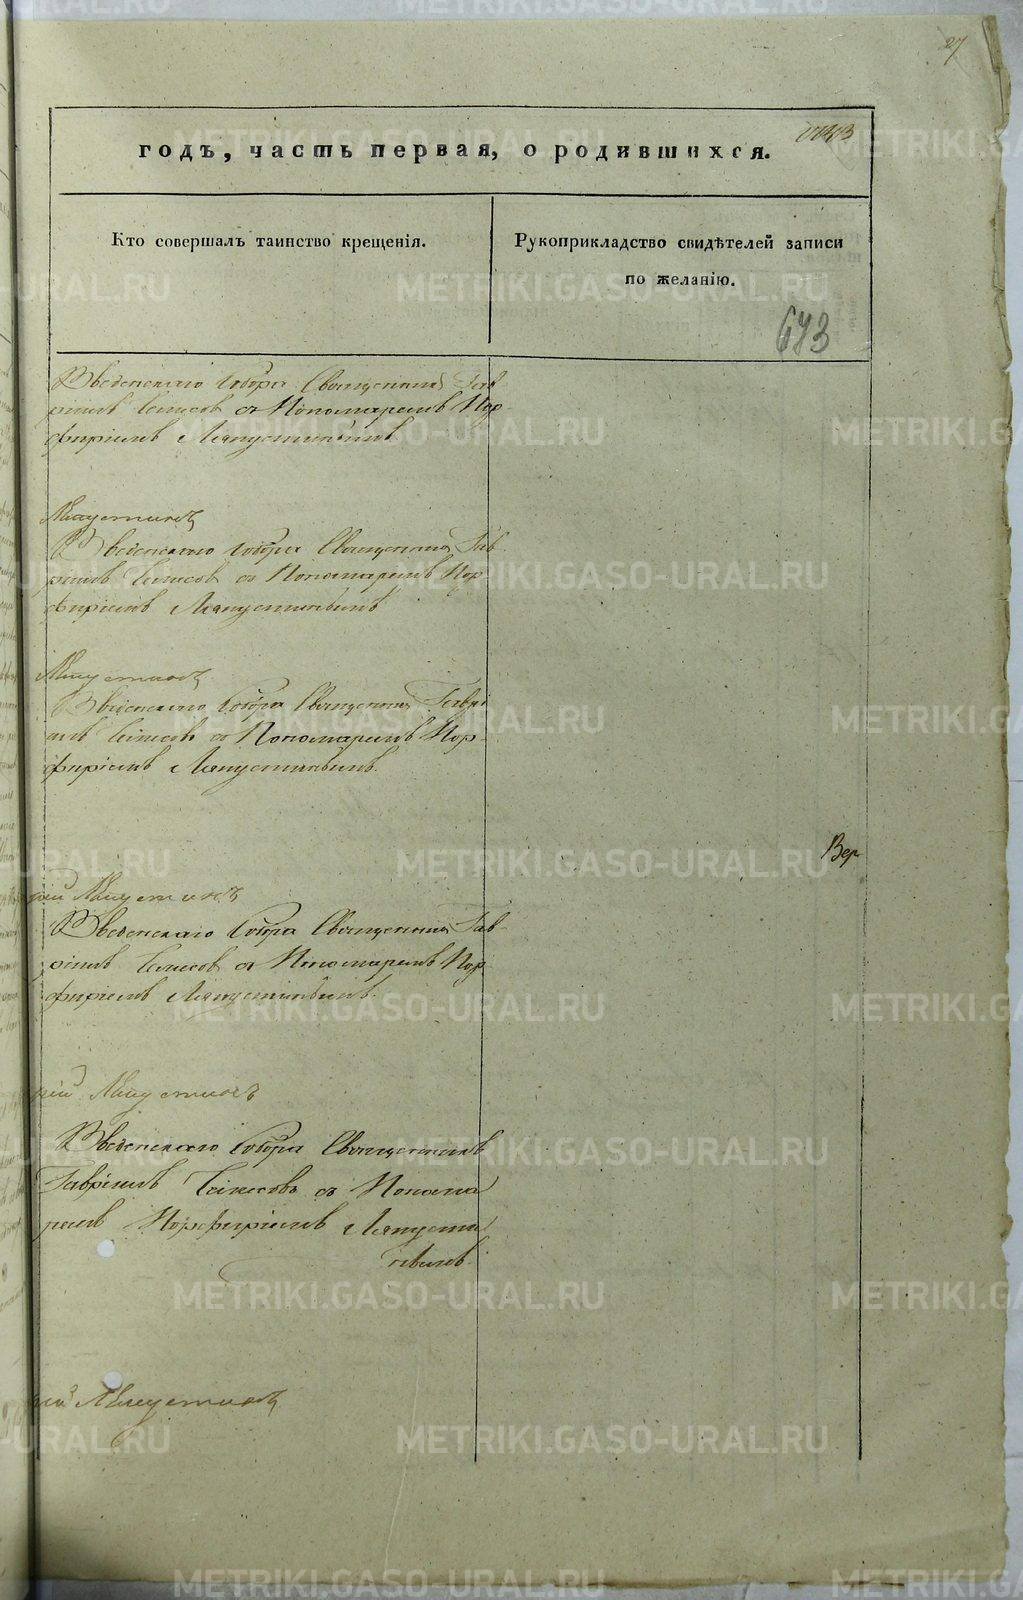 27
годъ, часть первая, о родившихся.
Кто совершалъ таинство крещенія.
Рукоприкладство свидѣтелей записи
по желанію.
673
Введенскаго Собора Священникъ Гав
ріилъ с Пономаремъ Пор
фиріемъ Ляпустинымъ
Ляпустинъ
Введенскаго Собора Священникъ Гав
ріилъ съ Пономаремъ Пор
фиріемъ Ляпустинымъ
Ляпустинъ
Введенскаго Собора Священникъ Гаврі
илъ съ Пономаремъ Пор
фиріемъ Ляпустинымъ.
Вер
рій Ляпустинъ
Введенскаго Собора Священникъ Гав
ріилъ съ Пономаремъ Пор
фиріемъ Ляпустинымъ.
рій Ляпустинъ
Введенскаго Собора Священникъ
Гавріилъ съ Понома
ремъ Порфиріемъ Ляпусти
нымъ.
рій Ляпустинъ
METRIKI.GASO-URAL.RU